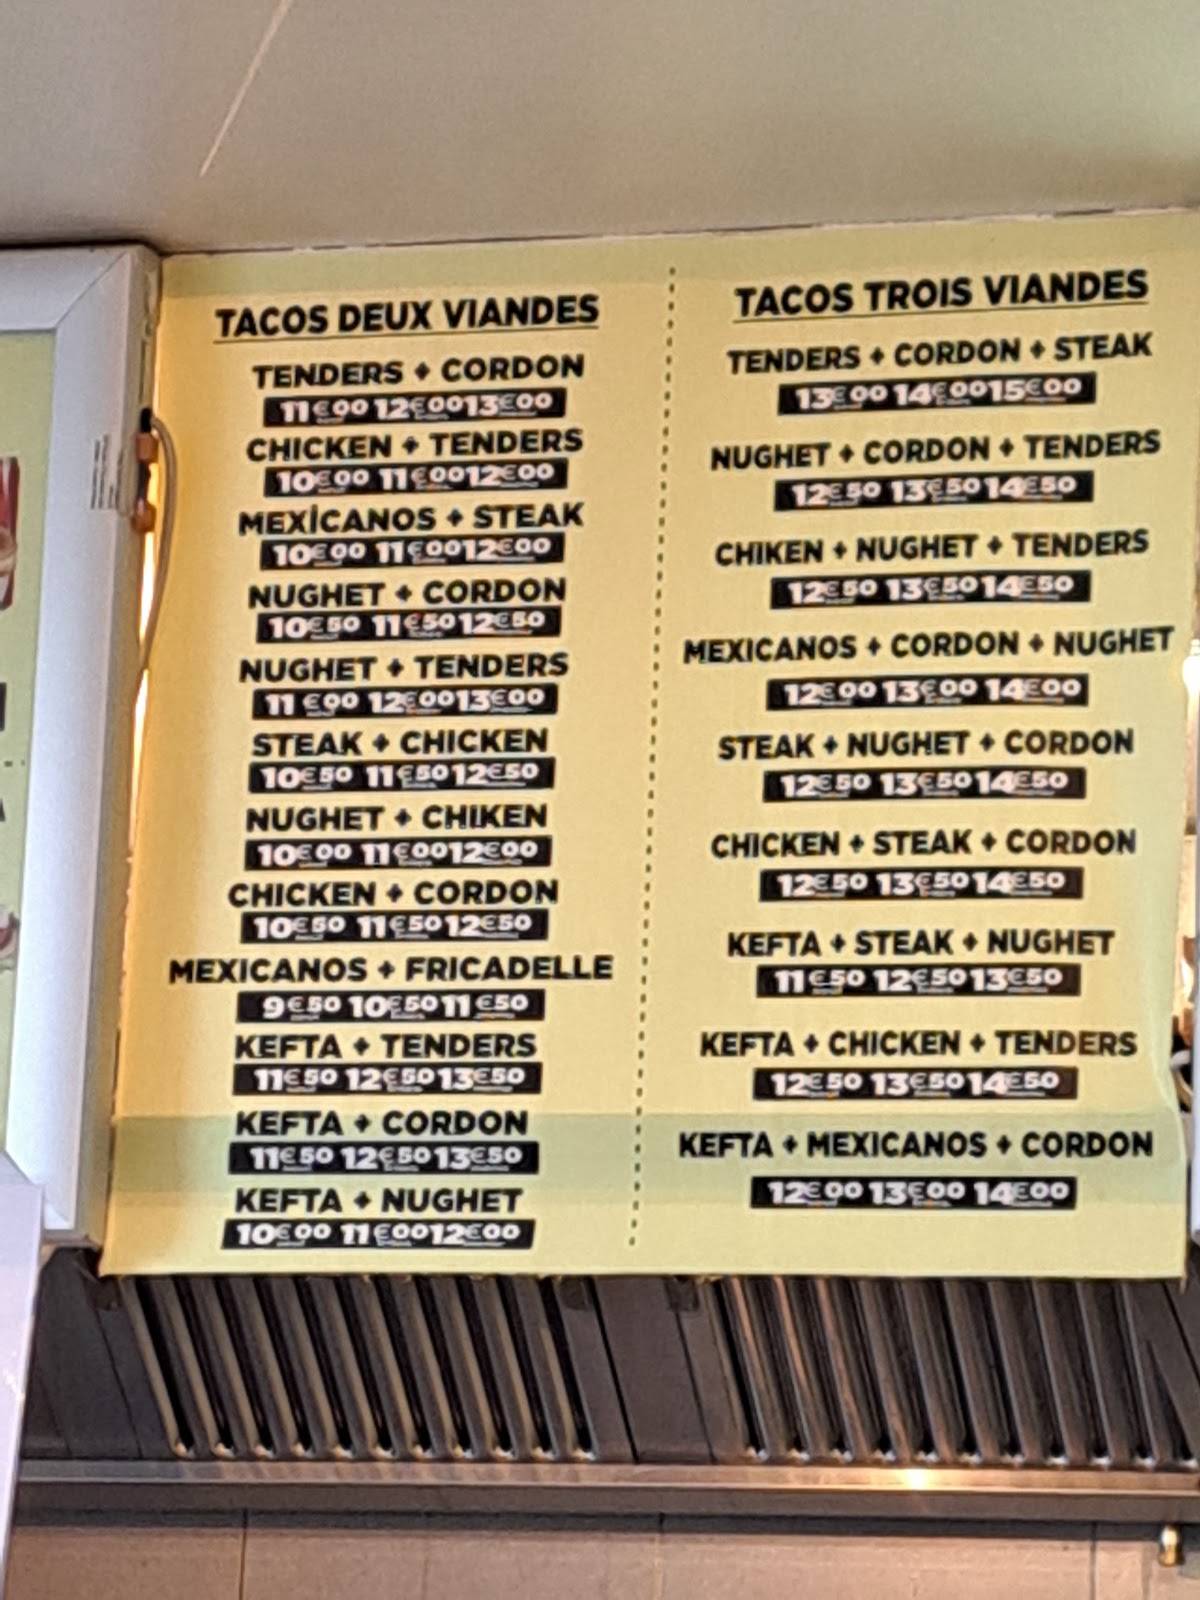 TACOS DEUX VIANDES
TENDERS + CORDON
11€00 12€00 13€00
CHICKEN + TENDERS
10€00 11€00 12€00
MEXİCANOS + STEAK
10€00 11€00 12€00
NUGHET + CORDON
10€50 11€50 12€50
NUGHET + TENDERS
11€00 12€00 13€00
STEAK + CHICKEN
10€50 11€50 12€50
NUGHET + CHIKEN
10€00 11€00 12€00
CHICKEN + CORDON
10€50 11€50 12€50
MEXICANOS + FRICADELLE
9€50 10€50 11€50
KEFTA + TENDERS
11€50 12€50 13€50
KEFTA + CORDON
11€50 12€50 13€50
KEFTA + NUGHET
10€00 11€00 12€00
TACOS TROIS VIANDES
TENDERS + CORDON + STEAK
13€00 14€00 15€00
NUGHET + CORDON + TENDERS
12€50 13€50 14€50
CHIKEN + NUGHET + TENDERS
12€50 13€50 14€50
MEXICANOS + CORDON + NUGHET
12€00 13€00 14€00
STEAK + NUGHET + CORDON
12€50 13€50 14€50
CHICKEN + STEAK + CORDON
12€50 13€50 14€50
KEFTA + STEAK + NUGHET
11€50 12€50 13€50
KEFTA + CHICKEN + TENDERS
12€50 13€50 14€50
KEFTA + MEXICANOS + CORDON
12€00 13€00 14€00